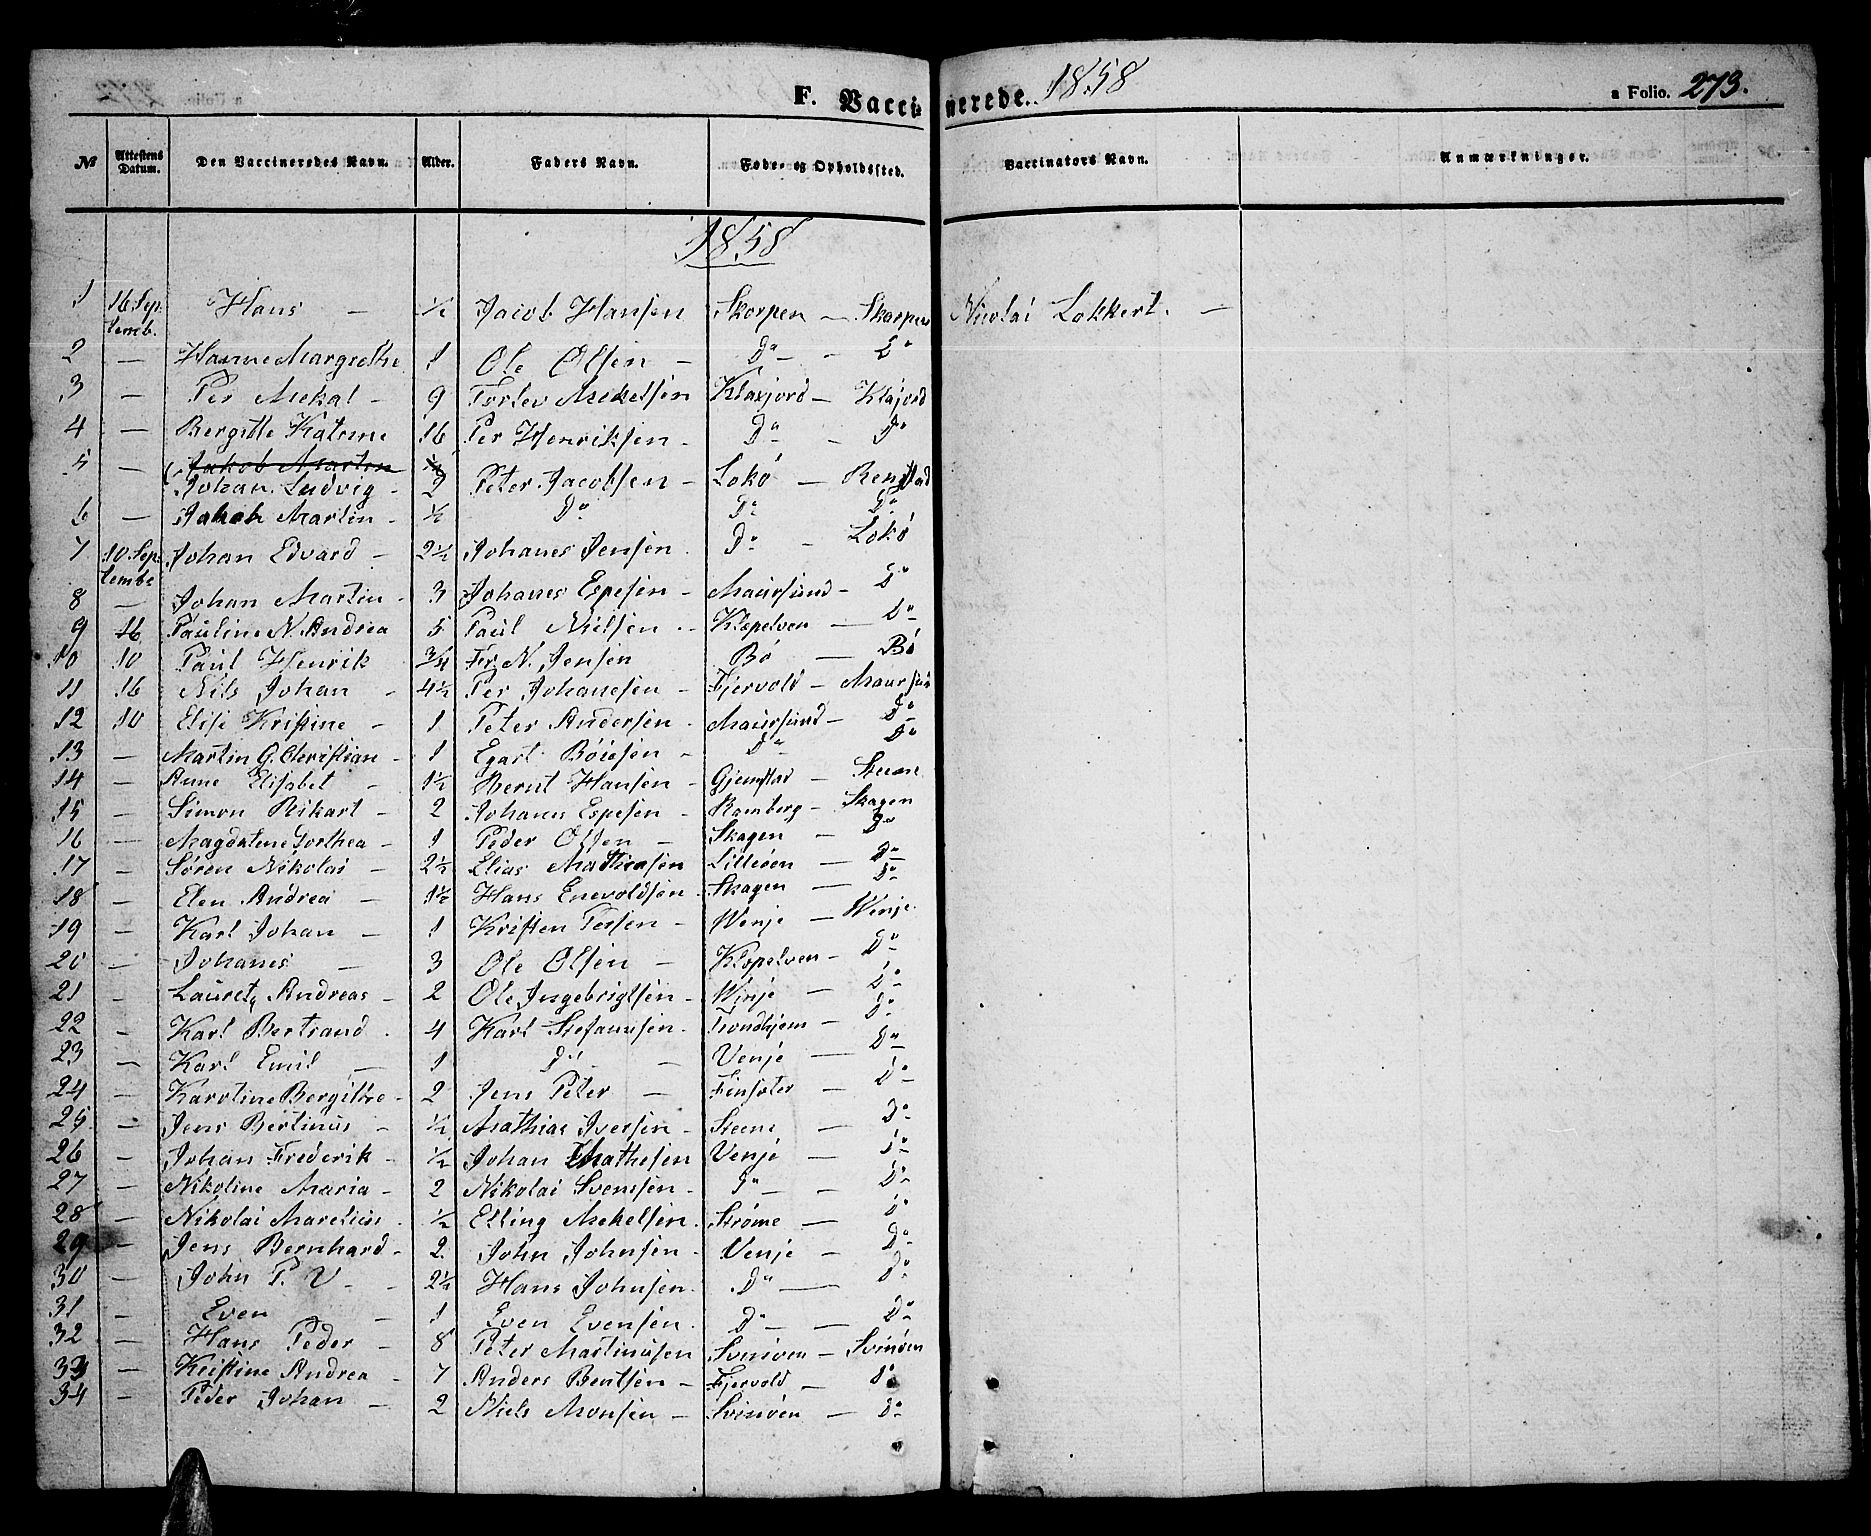 F. Vaccinerede. 1858 a Folio. 273.
№ Attestens Datum. Den Vaccineredes Navn. Alder. Faders Navn. Føde- og Opholdssted. Vaccinators Navn. Anmærkninger.
1858
1 16 Septemb. Hans — ½ Jacob Hansen Skorpen — Skorpen Nicolai Lokkert. —
2 — Hanne Margrethe 1 Ole Olsen — Do — Do
3 — Per Mekal — 9 Torlev Mekelsen Klaxjord — Klajord
4 — Bergitte Katrine 16 Per Henriksen — Do — Do
5 — Jakob Martin ½
Johan Ludvig — 2 Peter Jacobsen — Lokø — Renstad
6 — Jakob Martin — ½ Do Do Do
7 10 Septembe Johan Edvard — 2½ Johanes Jensen Do — Lokø
8 — Johan Martin — 3 Johanes Espesen — Maursund — Do
9 16 Pauline N. Andrea 5 Paul Nielsen — Klæpelven — Do
10 10 Paul Henrik 3/4 Fr. N. Jensen Bø — Bø
11 16 Nils Johan — 4½ Per Johanesen — Fjervold — Maursun
12 10 Elise Kristine — 1 Peter Andersen — Maursund — Do
13 — Martin G. Christian — 1 Egart Böiesen — Do Do
14 — Anne Elisabet — 1½ Bernt Hansen — Gjemstad — Steene
15 — Simon Rikart — 2 Johanes Espesen — Ramberg — Skagen
16 — Magdalene Dorthea — 1 Peder Olsen — Skagen — Do
17 — Sören Nikolai — 2½ Elias Mathiasen Lilleøen — Do
18 — Elen Andrea — 1½ Hans Enevoldsen Skagen — Do
19 — Karl Johan — 1 Kristen Persen — Wenje — Wenje
20 — Johanes — 3 Ole Olsen — Klæpelven — Do
21 — Lauret Andreas — 2 Ole Ingebrigtsen — Winje — Do
22 — Karl Bertrand 4 Karl Stefanusen — Trondhjem — Do
23 — Karl Emil — 1 Do — Venje — Do
24 — Karoline Bergitte — 2 Jens Peter — Finsæter — Do
25 — Jens Bertinus — ½ Mathias Iversen — Steene — Do
26 — Johan Frederik — ½ Johan Mathesen Venje — Do
27 — Nikoline Maria — 2 Nikolai Svensen — Do — Do
28 — Nikolai Marelius ½ Elling Mekelsen Strøme — Do
29 — Jens Bernhard — 2 John Johnsen — Venje — Do
30 — John P. V — 2½ Hans Johnsen Do — Do
31 — Even — 1 Even Evensen Do — Do
32 — Hans Peder — 8 Peter Martinusen Svinøen — Svinøen
33 — Kristine Andrea — 7 Anders Bentsen — Fjervold — Do
34 — Peder Johan — 2 Niels Monsen — Svinøen — Do